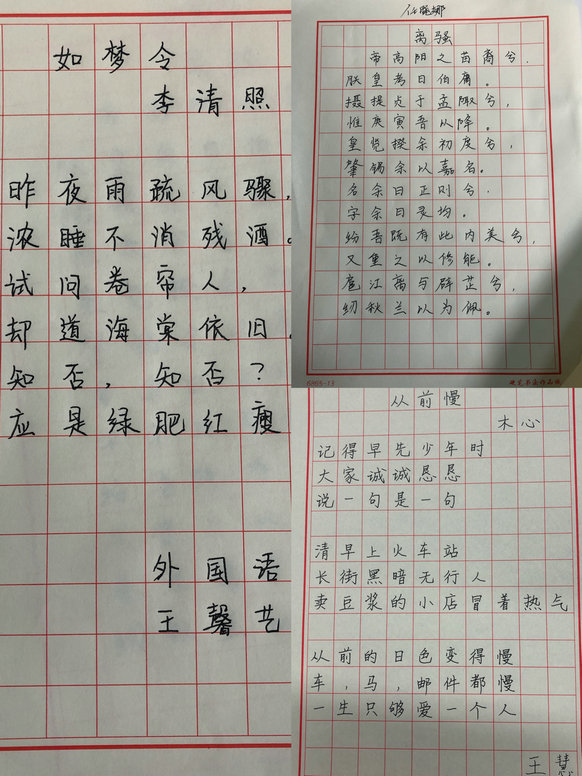 如梦令
李清照
昨夜雨疏风骤，
浓睡不消残酒。
试问卷帘人，
却道海棠依旧。
知否，知否？
应是绿肥红瘦
外国语
王馨艺
任晓娜
离骚
帝高阳之苗裔兮，
朕皇考曰伯庸。
摄提贞于孟陬兮，
惟庚寅吾以降。
皇览揆余初度兮，
肇锡余以嘉名。
名余曰正则兮，
字余曰灵均。
纷吾既有此内美兮，
又重之以修能。
扈江离与辟芷兮，
纫秋兰以为佩。
6865-13
硬笔书法作品纸
从前慢
木心
记得早先少年时
大家诚诚恳恳
说一句是一句
清早上火车站
长街黑暗无行人
卖豆浆的小店冒着热气
从前的日色变得慢
车，马，邮件都慢
一生只够爱一个人
王慧